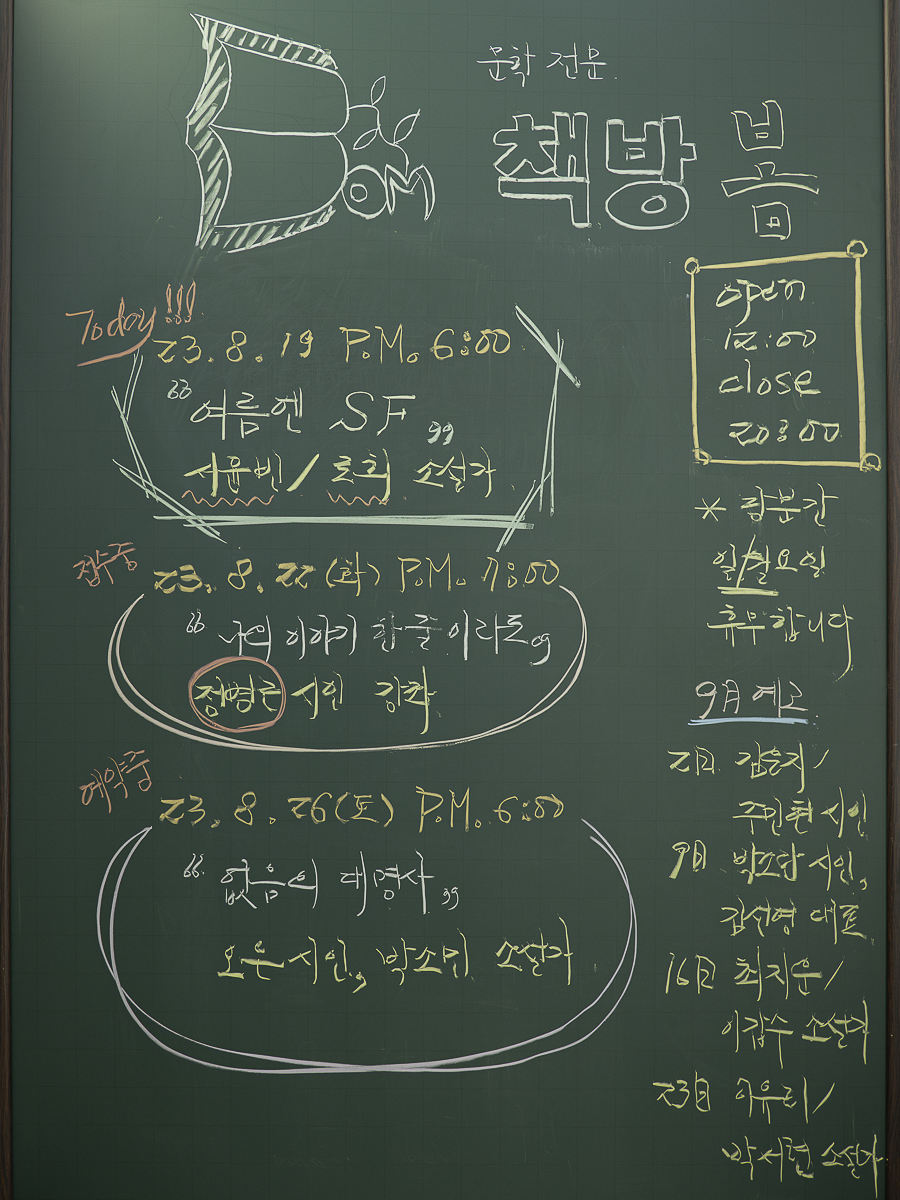 BOM
문학 전문
책방 봄
Today!!!
23. 8. 19 P.M. 6:00
"여름엔 SF"
서윤빈 / 로희 소설가
접수중
23. 8. 22 (화) P.M. 7:00
"나의 이야기 한 줄이라도"
시인 강좌
예약중
23. 8. 26(토) P.M. 6:00
"없음의 대명사"
오은 시인, 박소민 소설가
open
12:00
close
20:00
* 당분간
일/월요일
휴무합니다
9월 예고
2日 김은지/
주민현 시인
9日 박소란 시인,
김선영 대표
16日 최지운/
이갑수 소설가
23日 이유리/
박서련 소설가